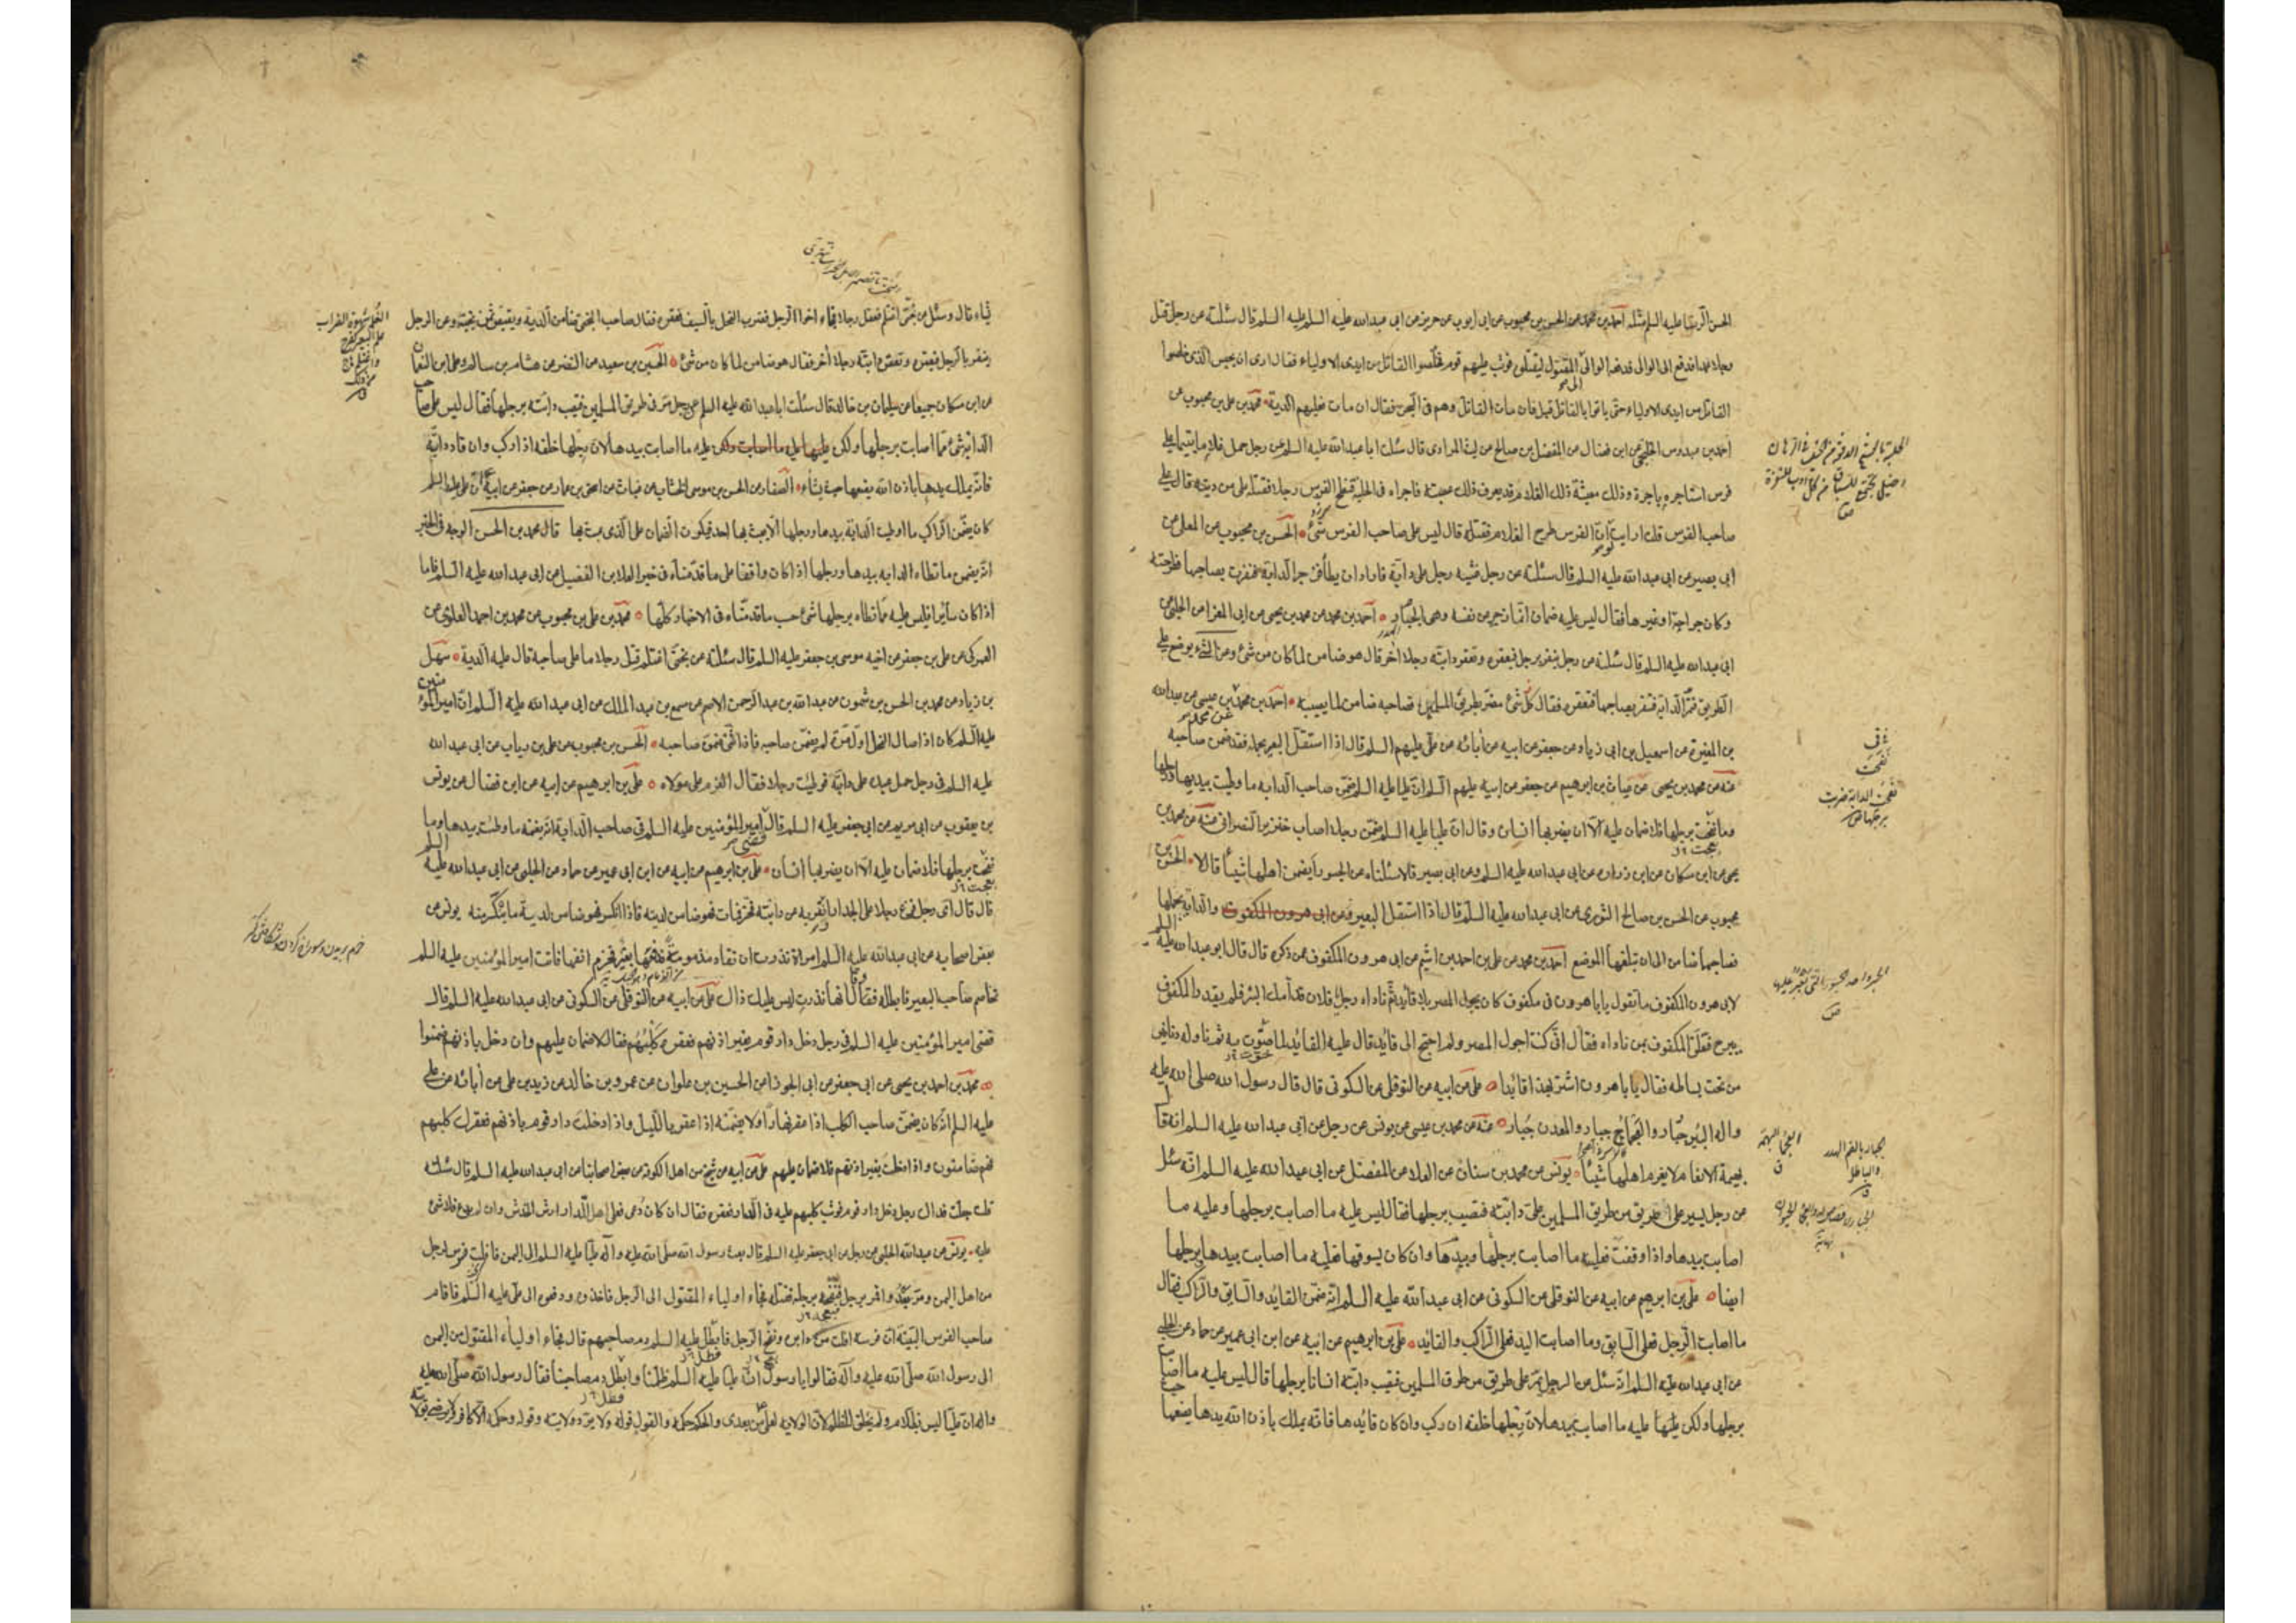 الحسن الرضا عليه السلم مثله احمد بن محمد عن الحسن بن محبوب عن ابى ايوب عن حريز عن ابى عبدالله عليه السلم قال سئلته عن رجل قتل
رجلا عمدا فدفع الى الوالى فدفعه الوالى الى اولياء المقتول ليقتلوه فوثب عليهم قوم فخلصوا القاتل من ايدى الاولياء فقال ارى ان يحبس الذى خلصوا
القاتل من ايدى الاولياء حتى ياتوا بالقاتل قيل فان مات القاتل وهم فى السجن فقال ان مات فعليهم الدية محمد بن على بن محبوب عن
احمد بن عبدوس الخلنجى عن ابن فضال عن المفضل بن صالح عن ليث المرادى قال سئلت ابا عبدالله عليه السلم عن رجل حمل غلاما يتيما على
فرس استاجره باجرة وذلك معيشة ذلك الغلام قد يعرف ذلك عصبته فاجراه فى الحلبة فنطح الفرس رجلا فقتله على من ديته قال على
صاحب الفرس قلت ارايت لو ان الفرس طرح الغلام فقتله قال ليس على صاحب الفرس شئ الحسن بن محبوب عن المعلى عن
ابى بصير عن ابى عبدالله عليه السلم قال سئلته عن رجل غشيه رجل على دابة فاراد ان يطأ فزجر الدابة فنفرت بصاحبها فطرحته
وكان جراحة او غيرها فقال ليس عليه ضمان انما زجر عن نفسه وهى الجبار احمد بن محمد عن محمد بن يحيى عن ابى المغرا عن الحلبى عن
ابى عبدالله عليه السلم قال سئلته عن رجل ينفر برجل فيعقره وتعقر دابته رجلا اخر قال هو ضامن لما كان من شئ وعن الشئ يوضع على
الطريق فتمر الدابة فتنفر بصاحبها فتعقره فقال كل شئ مضر بطريق المسلمين فصاحبه ضامن لما يصيبه احمد بن محمد بن عيسى عن عبدالله
بن المغيرة عن اسمعيل بن ابى زياد عن جعفر عن ابيه عن آبائه عن على عليهم السلم قال اذا استقل البعير بحمله فقد ضمن صاحبه
عنه عن محمد بن يحيى عن غياث بن ابرهيم عن جعفر عن ابيه عليهم السلم ان عليا عليه السلم ضمن صاحب الدابة ما وطيت بيديها ورجلها
وما نفحت برجلها فلا ضمان عليه الا ان يضربها انسان وقال ان عليا عليه السلم ضمن رجلا اصاب خنزير النصرانى عنه عن محمد بن
يحيى عن ابن مسكان عن ابن زرارة عن ابى عبدالله عليه السلم وعن ابى بصير قالا سئلناه عن الجسور أيضمن اهلها شيئا قال لا الحسن بن
محبوب عن الحسن بن صالح الثورى عن ابى عبدالله عليه السلم قال اذا استقل البعير والدابة بحملها
فصاحبها ضامن الى ان تبلغها الموضع احمد بن محمد عن على بن احمد بن اشيم عن ابى هرون المكفوف عمن ذكره قال قال ابو عبدالله عليه السلم
لابى هرون المكفوف ما تقول يا با هرون فى مكفوف كان يجول المصر بلا قائد ثم ناداه رجل يا فلان قدامك البئر فلم يقدر المكفوف
يبرح فتعلق المكفوف بمن ناداه فقال انى كنت اجول المصر ولم احتج الى قائد قال عليه القائد لما صوت به ثم ناوله دنانير
من تحت بساطه فقال يا با هرون اشتر بهذا قائدا على عن ابيه عن النوفلى عن السكونى قال قال رسول الله صلى الله عليه
واله البئر جبار والعجماء جبار والمعدن جبار عنه عن محمد بن عيسى عن يونس عن رجل عن ابى عبدالله عليه السلم انه قال
بهيمة الانعام لا يغرم اهلها شيئا يونس عن محمد بن سنان عن العلا عن المفضل عن ابى عبدالله عليه السلم انه سئل
عن رجل يسير على طريق من طريق المسلمين على دابته فتصيب برجلها فقال ليس عليه ما اصاب برجلها وعليه ما
اصابت بيدها واذا وقفت فعليه ما اصابت برجلها ويدها وان كان يسوقها فعليه ما اصابت بيدها برجلها
ايضا على بن ابرهيم عن ابيه عن النوفلى عن السكونى عن ابى عبدالله عليه السلم انه ضمن القائد والسايق والراكب فقال
ما اصاب الرجل فعلى السايق وما اصابت اليد فعلى الراكب والقائد على بن ابرهيم عن ابيه عن ابن ابى عمير عن حماد عن الحلبى
عن ابى عبدالله عليه السلم انه سئل عن الرجل يمر على طريق من طرق المسلمين فتصيب دابته انسانا برجلها قال ليس عليه ما اصابت
برجلها ولكن عليه ما اصابت بيدها لان رجلها خلفه ان ركب وان كان قائدها فانه يملك باذن الله يدها يضعها
حيث
يشاء قال وسئل عن بختى اغتلم فقتل رجلا فجاء اخو الرجل فضرب الفحل بالسيف فعقره فقال صاحب البختى ضامن الدية ويقتص ثمن بختيه وعن الرجل
ينفر بالرجل فيعقره وتعقر دابته رجلا اخر فقال هو ضامن لما كان من شئ الحسين بن سعيد عن النضر عن هشام بن سالم وعلى بن النعمان
عن ابن مسكان جميعا عن سليمان بن خالد قال سئلت ابا عبدالله عليه السلم عن رجل مر فى طريق المسلمين فتصيب دابته برجلها فقال ليس على صاحب
الدابة شئ مما اصابت برجلها ولكن عليه ما اصابت بيدها لان رجلها خلفه اذا ركب وان قاد دابة
فانه يملك يدها باذن الله يضعها حيث يشاء الصفار عن الحسن بن موسى الخشاب عن غياث عن اسحق بن عمار عن جعفر عن ابيه ان عليا عليه السلم
كان يضمن الراكب ما اوطت الدابة بيدها ورجلها الا ان يعبث بها احد فيكون الضمان على الذى عبث بها قال محمد بن الحسن الوجه فى الخبر
انه يضمن ما تطاء الدابه بيدها ورجلها اذا كان واقفا على ما قدمناه فى خبر العلا بن الفضيل عن ابى عبدالله عليه السلم فاما
اذا كان سائرا فليس عليه مما تطاه برجلها شئ حسب ما قدمناه فى الاخبار كلها محمد بن على بن محبوب عن محمد بن احمد العلوى عن
العمركى عن على بن جعفر عن اخيه موسى بن جعفر عليه السلم قال سئلته عن بختى اغتلم قتل رجلا ما على صاحبه قال عليه الدية سهل
بن زياد عن محمد بن الحسن بن شمون عن عبدالله بن عبد الرحمن الاصم عن مسمع بن عبد الملك عن ابى عبدالله عليه السلم ان امير المؤمنين
عليه السلم كان اذا صال الفحل اول مرة لم يضمن صاحبه فاذا ثنى ضمن صاحبه الحسن بن محبوب عن على بن رياب عن ابى عبدالله
عليه السلم فى رجل حمل عبده على دابة فوطيت رجلا فقال الغرم على مولاه على بن ابرهيم عن ابيه عن ابن فضال عن يونس
بن يعقوب عن ابى مريم عن ابى جعفر عليه السلم قال قضى امير المؤمنين عليه السلم فى صاحب الدابة انه يضمنه ما وطئت بيدها وما
نفحت برجلها فلا ضمان عليه الا ان يضربها انسان على بن ابرهيم عن ابيه عن ابن ابى عمير عن حماد عن الحلبى عن ابى عبدالله عليه السلم
قال قال اى رجل فزع رجلا على الجدار او نفر به عن دابته فخر فمات فهو ضامن لديته فاذا انكسر فهو ضامن لدية ما ينكسر منه يونس عن
بعض اصحابه عن ابى عبدالله عليه السلم امراة نذرت ان تقاد مزمومة فدفعها بعير فخرم انفها فاتت امير المؤمنين عليه السلم
تخاصم صاحب البعير فابطله فقال انما نذرت ليس عليك ذاك على عن ابيه عن النوفلى عن السكونى عن ابى عبدالله عليه السلم قال
قضى امير المؤمنين عليه السلم فى رجل دخل دار قوم بغير اذنهم فعقره كلبهم فقال لا ضمان عليهم وان دخل باذنهم ضمنوا
محمد بن احمد بن يحيى عن ابى جعفر عن ابى الجوزا عن الحسين بن علوان عن عمرو بن خالد عن زيد بن على عن آبائه عن على
عليه السلم انه كان يضمن صاحب الكلب اذا عقر نهارا ولا يضمنه اذا عقر بالليل واذا دخلت دار قوم باذنهم فعقرك كلبهم
فهم ضامنون واذا دخلت بغير اذنهم فلا ضمان عليهم على عن ابيه عن شيخ من اهل الكوفة عن بعض اصحابنا عن ابى عبدالله عليه السلم قال سئلته
قلت جعلت فداك رجل دخل دار قوم فوثب كلبهم عليه فى الدار فعقره فقال ان كان دعى فعلى اهل الدار ارش الخدش وان لم يدع فلا شئ
عليه يونس عن عبيدالله الحلبى عن رجل عن ابى جعفر عليه السلم قال بعث رسول الله صلى الله عليه وآله عليا عليه السلم الى اليمن فافلت فرس لرجل
من اهل اليمن ومر يعدو فمر برجل فنفحه برجله فقتله فجاء اولياء المقتول الى الرجل فاخذوه ورفعوه الى على عليه السلم فاقام
صاحب الفرس البينة ان فرسه افلت من داره ونفح الرجل فابطل عليه السلم دم صاحبهم قال فجاء اولياء المقتول من اليمن
الى رسول الله صلى الله عليه وآله فقالوا يا رسول الله ان عليا عليه السلم ظلمنا وابطل دم صاحبنا فقال رسول الله صلى الله عليه
واله ان عليا ليس بظلام ولم يخلق للظلم لان الولاية لعلى من بعدى والحكم حكمه والقول قوله ولا يرد ولايته وقوله وحكمه الا كافر